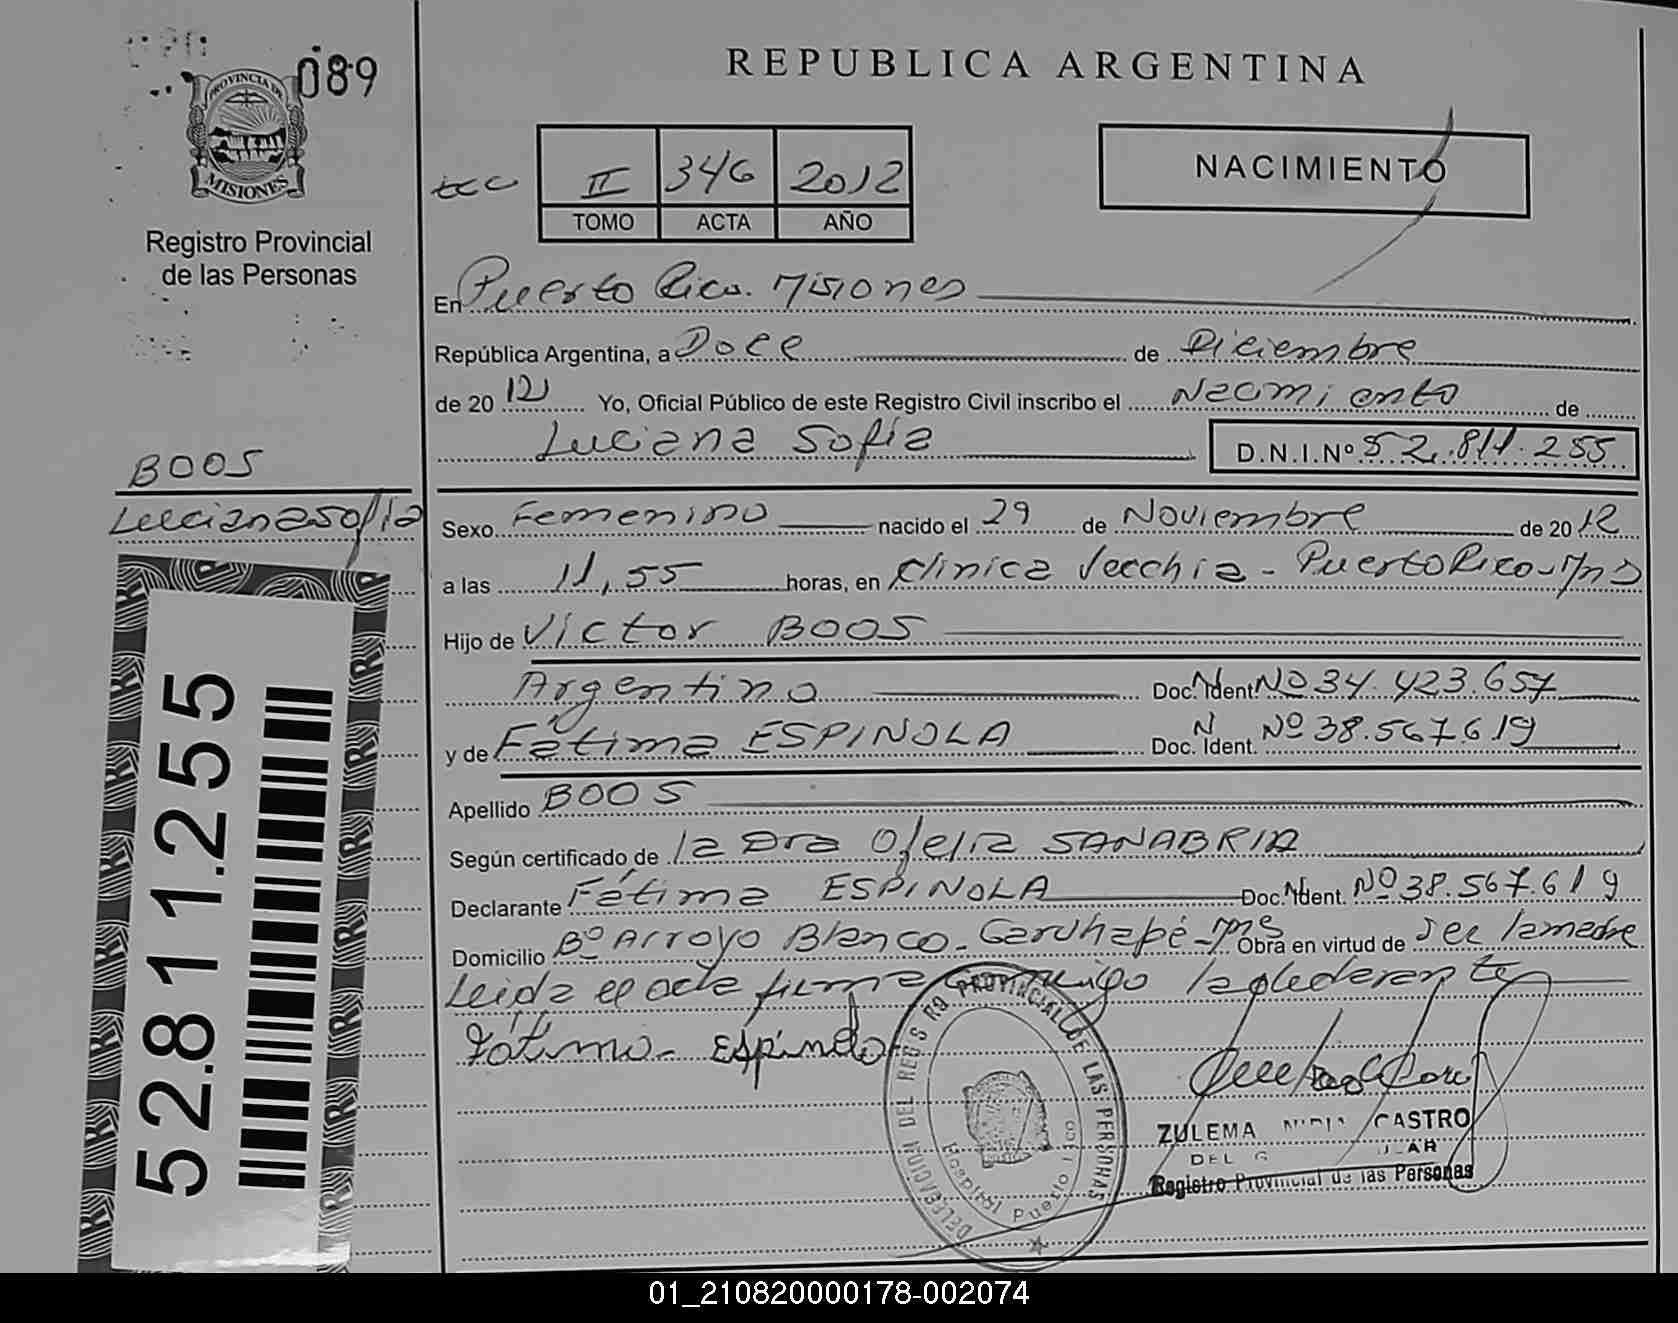 089
PROVINCIA DE
MISIONES
Registro Provincial
de las Personas
REPUBLICA ARGENTINA
II 346 2012
TOMO ACTA AÑO
NACIMIENTO
En Puerto Rico. Misiones
República Argentina, a Doce de Diciembre
de 20 12 Yo, Oficial Público de este Registro Civil inscribo el Nacimiento de
Luciana Sofía D.N.I.Nº 52.811.255
BOOS
Luciana Sofia
Sexo Femenino nacido el 29 de Noviembre de 2012
a las 11,55 horas, en Clinica Vecchia - Puerto Rico - Mns
Hijo de Víctor BOOS
Argentino Doc. Ident. Nº 34.423.657
y de Fátima ESPINOLA Doc. Ident. Nº 38.567.619
Apellido BOOS
Según certificado de la Dra Ofelia SANABRIA
Declarante Fátima ESPINOLA Doc. Ident. Nº 38.567.619
Domicilio Bº Arroyo Blanco - Garuhapé - Mns Obra en virtud de ser la madre
Leida el acta firma conmigo la
Fátima Espíndola
DELEGACION DEL REG. PROVINCIAL DE LAS PERSONAS
Hospital Puerto Rico
ZULEMA CASTRO
Registro Provincial de las Personas
52.811.255
01_210820000178-002074